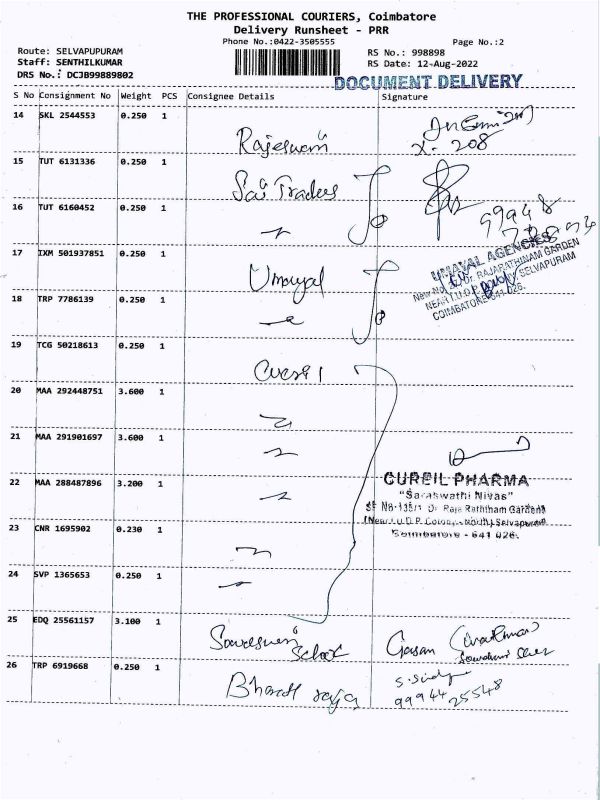 THE PROFESSIONAL COURIERS, Coimbatore
Delivery Runsheet - PRR
Phone No.:0422-3505555
Page No.:2
Route: SELVAPUPURAM
RS No.: 998898
Staff: SENTHILKUMAR
RS Date: 12-Aug-2022
DRS No.: DCJB99889802
DOCUMENT DELIVERY
S No Consignment No Weight PCS Consignee Details Signature
14 SKL 2544553 0.250 1
Rajeswari
X-208
15 TUT 6131336 0.250 1
Sai Traders
16 TUT 6160452 0.250 1
99948
17 IXM 501937851 0.250 1
Umayal
UMAYAL AGENCIES
RAJARATHINAM GARDEN
SELVAPURAM
COIMBATORE-641 026.
18 TRP 7786139 0.250 1
19 TCG 50218613 0.250 1
20 MAA 292448751 3.600 1
21 MAA 291901697 3.600 1
22 MAA 288487896 3.200 1
CUREIL PHARMA
"Saraswathi Nivas"
SF No-135/1 Dr Raja Raththam Gardens
Coimbatore - 641 026.
23 CNR 1695902 0.230 1
24 SVP 1365653 0.250 1
25 EDQ 25561157 3.100 1
School
26 TRP 6919668 0.250 1
Bharath
99944 25548